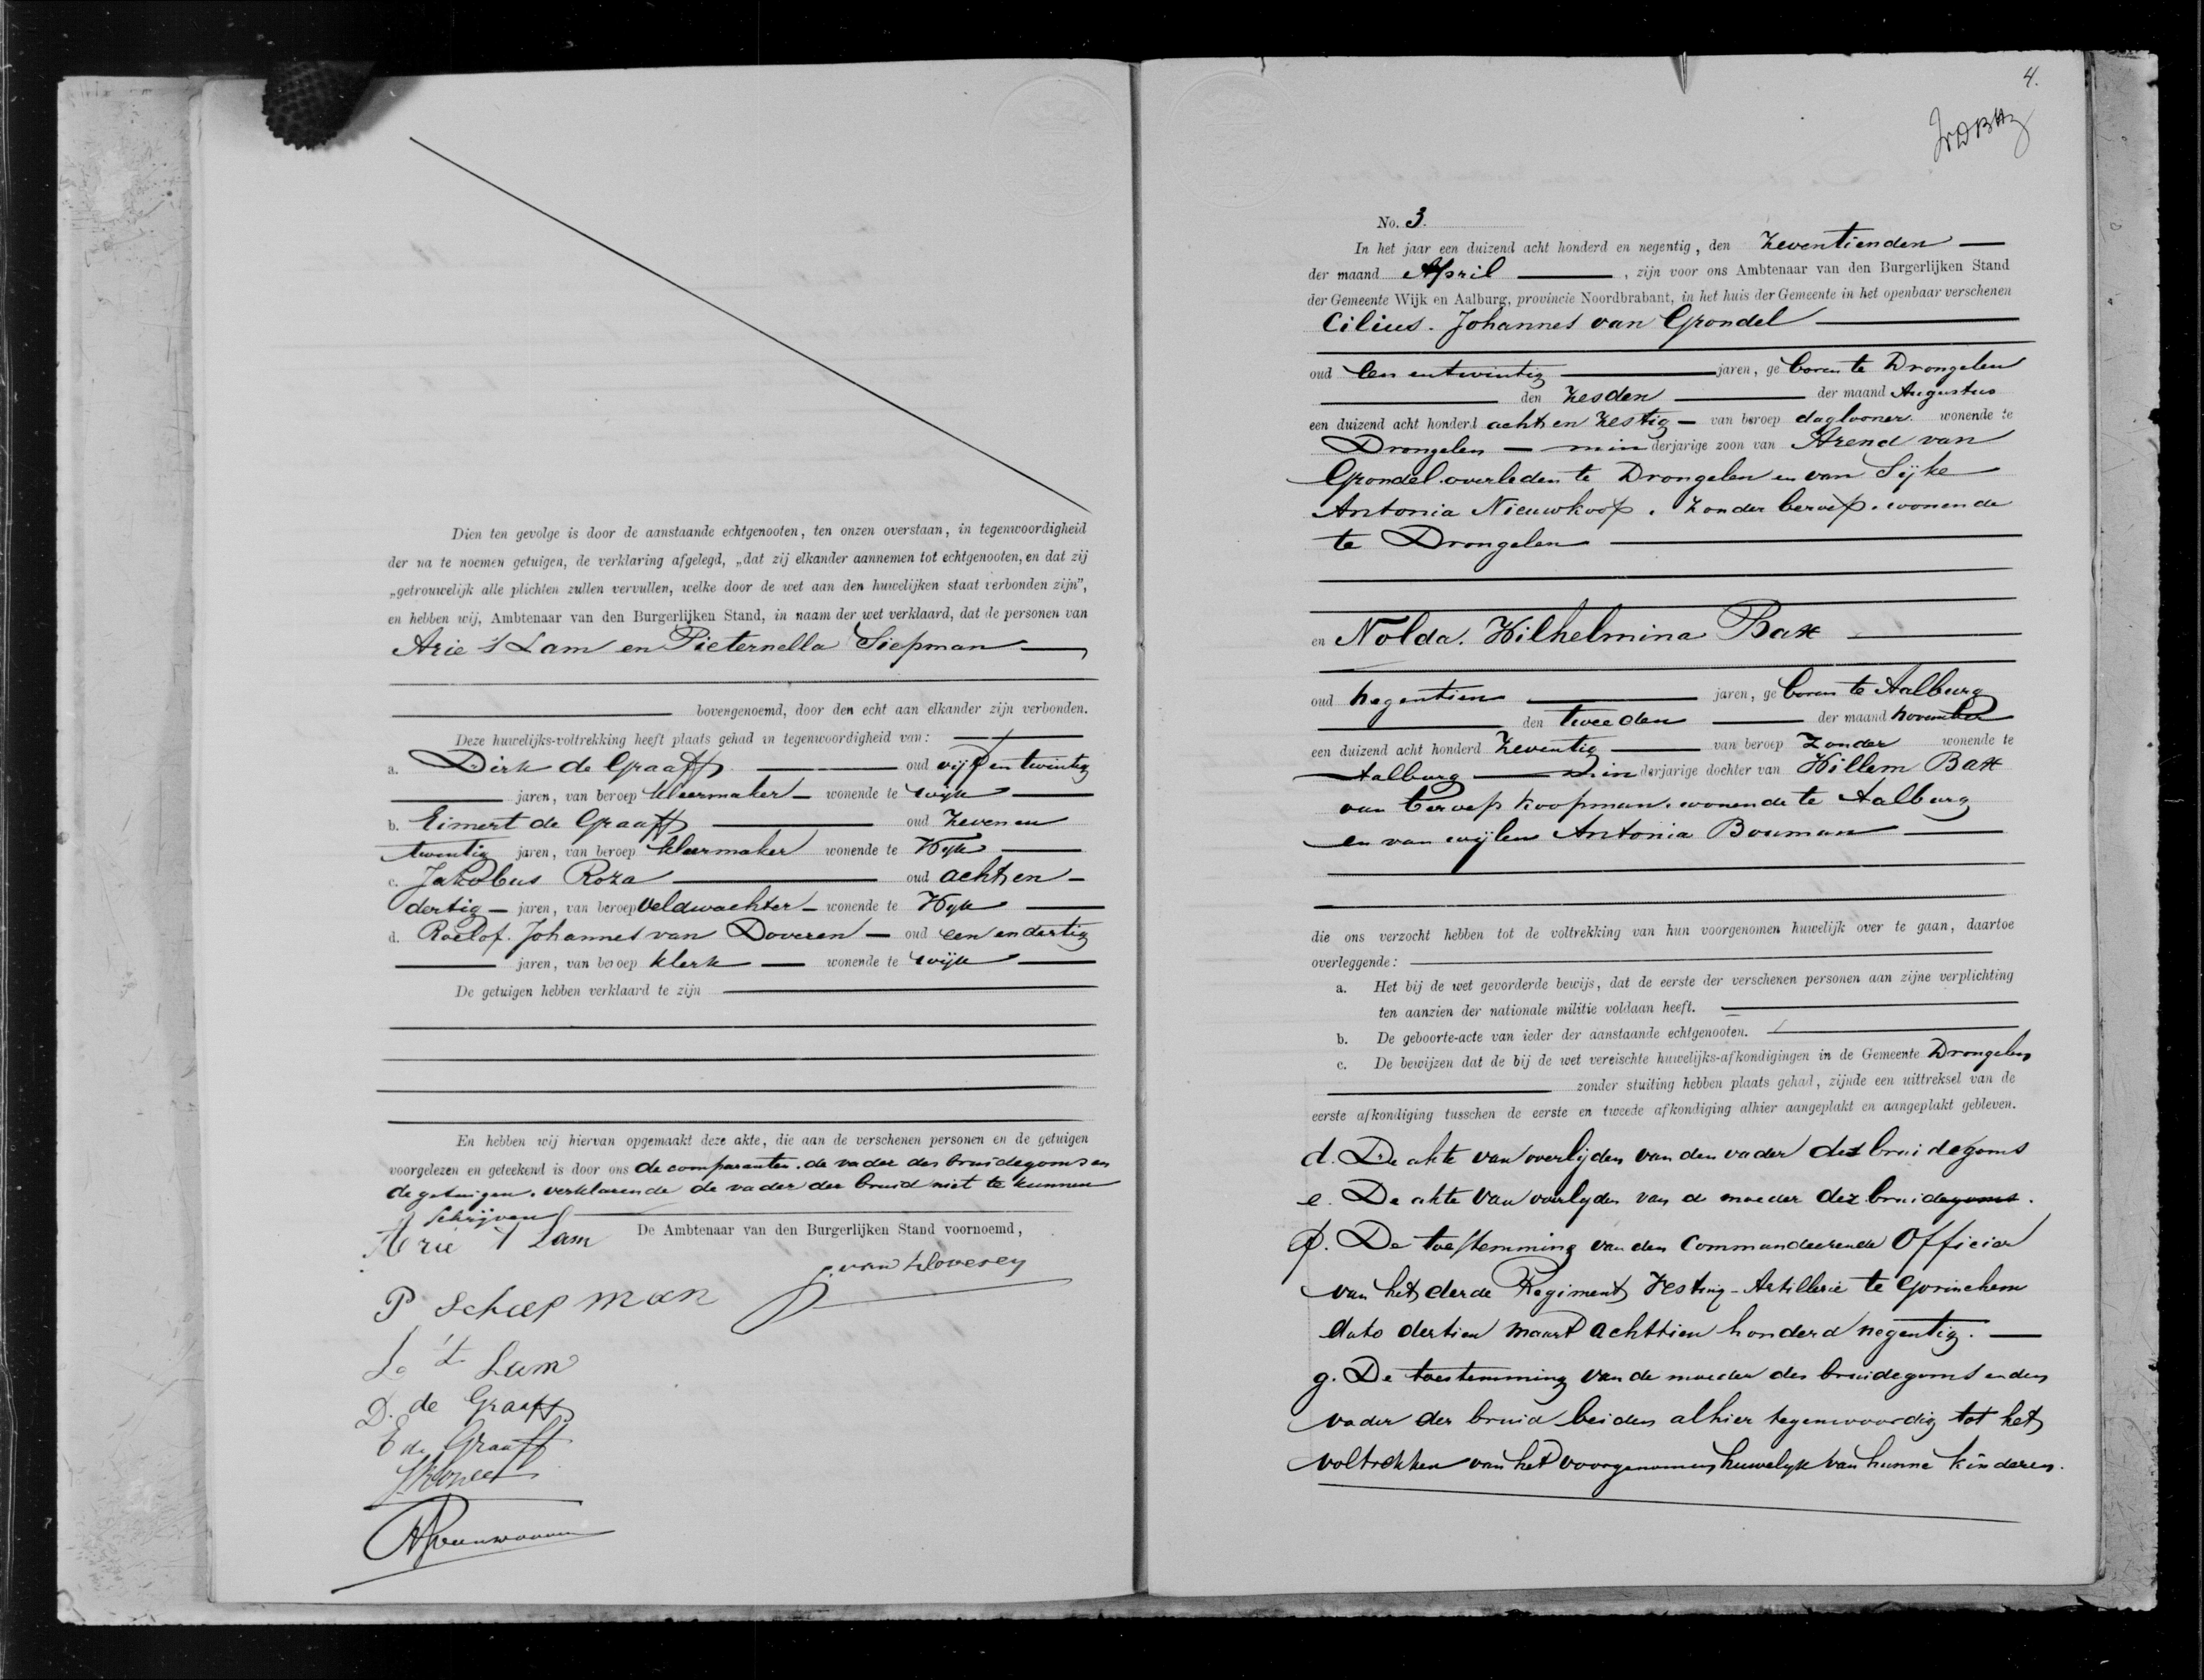 Dien ten gevolge is door de aanstaande echtgenooten, ten onzen overstaan, in tegenwoordigheid
der na te noemen getuigen, de verklaring afgelegd, „dat zij elkander aannemen tot echtgenooten, en dat zij
„getrouwelijk alle plichten zullen vervullen, welke door de wet aan den huwelijken staat verbonden zijn",
en hebben wij, Ambtenaar van den Burgerlijken Stand, in naam der wet verklaard, dat de personen van
Arie 't Lam en Pieternella Siepman
bovengenoemd, door den echt aan elkander zijn verbonden.
Deze huwelijks-voltrekking heeft plaats gehad in tegenwoordigheid van:
a. Dirk de Graaff oud vijf en twintig
jaren, van beroep kleermaker wonende te wijk
b. Eimert de Graaff oud zeven en
twintig jaren, van beroep kleermaker wonende te Wijk
c. Jakobus Roza oud acht en
dertig jaren, van beroep veldwachter wonende te Wijk
d. Roelof Johannes van Doveren oud een en dertig
jaren, van beroep klerk wonende te wijk
De getuigen hebben verklaard te zijn
En hebben wij hiervan opgemaakt deze akte, die aan de verschenen personen en de getuigen
voorgelezen en geteekend is door ons de comparanten. de vader des bruidegoms en
de getuigen. verklarende de vader der bruid niet te kunnen
schrijven
De Ambtenaar van den Burgerlijken Stand voornoemd,
Arie 't Lam
P Scheepman
't Lam
D. de Graaff
E de Graaff
4.
No. 3.
In het jaar een duizend acht honderd en negentig, den zeventienden
der maand April, zijn voor ons Ambtenaar van den Burgerlijken Stand
der Gemeente Wijk en Aalburg, provincie Noordbrabant, in het huis der Gemeente in het openbaar verschenen
Cilius. Johannes van Grondel
oud een entwintig jaren, ge boren te Drongelen
den zesden der maand Augustus
een duizend acht honderd acht en zestig van beroep daglooner wonende te
Drongelen minderjarige zoon van Arend van
Grondel. overleden te Drongelen en van Sijke
Antonia Nieuwkoop. zonder beroep. wonende
te Drongelen
en Nolda. Wilhelmina Bax
oud negentien jaren, ge boren te Aalburg
den tweeden der maand november
een duizend acht honderd zeventig van beroep zonder wonende te
Aalburg minderjarige dochter van Willem Bax
van beroep koopman. wonende te Aalburg
en van wijlen Antonia Bouman
die ons verzocht hebben tot de voltrekking van hun voorgenomen huwelijk over te gaan, daartoe
overleggende:
a. Het bij de wet gevorderde bewijs, dat de eerste der verschenen personen aan zijne verplichting
ten aanzien der nationale militie voldaan heeft.
b. De geboorte-acte van ieder der aanstaande echtgenooten.
c. De bewijzen dat de bij de wet vereischte huwelijks-afkondigingen in de Gemeente Drongelen
zonder stuiting hebben plaats gehad, zijnde een uittreksel van de
eerste afkondiging tusschen de eerste en tweede afkondiging alhier aangeplakt en aangeplakt gebleven.
d. De akte van overlijden van den vader des bruidegoms
e. De akte van overlyden van de moeder der bruidegoms.
f. De toestemming van den Commandeerende Officier
van het derde Regiment Vesting-Artillerie te Gorinchem
dato dertien maart achttien honderd negentig.
g. De toestemming van de moeder des bruidegoms en den
vader der bruid beiden alhier tegenwoordig tot het
voltrekken van het voorgenomen huwelyk van hunne kinderen.